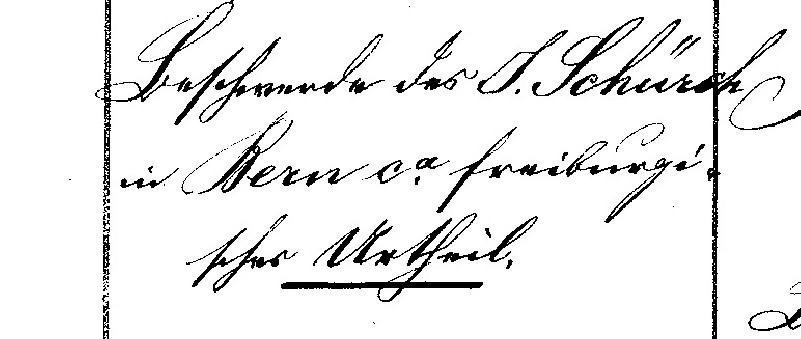 Beschwerde des J. Schürch
in Bern ca. freiburgi-
sches Urtheil.